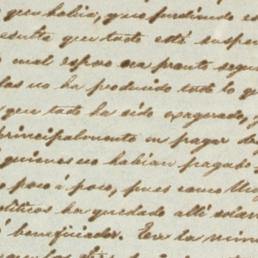 que había, que pudiendo es
resulta que todo está suspen
mal espero sea pronto segu
no ha producido todo lo q
que todo ha sido exagerado, y
principalmente en pagar de
quienes no habian pagado
poco á poco, pues como Ueg
políticos ha quedado allí solam
beneficiador. En la mina